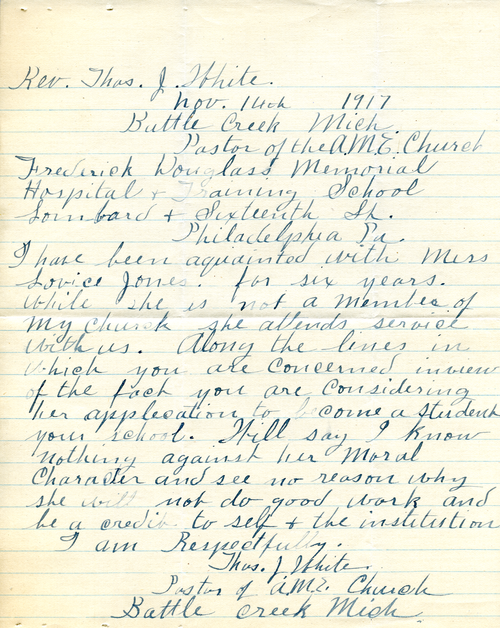 Rev. Thos. J. White.
Nov. 14th 1917
Battle Creek Mich.
Pastor of the A.M.E. Church
Frederick Douglass Memorial
Hospital & Training School
Lombard & Sixteenth St.
Philadelphia Pa.
I have been aquainted with Miss
Lovice Jones. for six years.
While she is not a member of
my church she attends service
with us. Along the lines in
which you are concerned in view
of the fact you are considering
her application to become a student
your school. Will say I know
nothing against her moral
character and see no reason why
she will not do good work and
be a credit to self & the institution
I am Respectfully.
Thos. J White.
Pastor of A.M.E. Church
Battle Creek Mich.